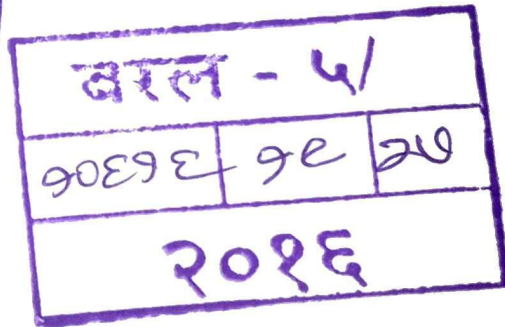 बरल - ५/
१०६१६ १९ २७
२०१६